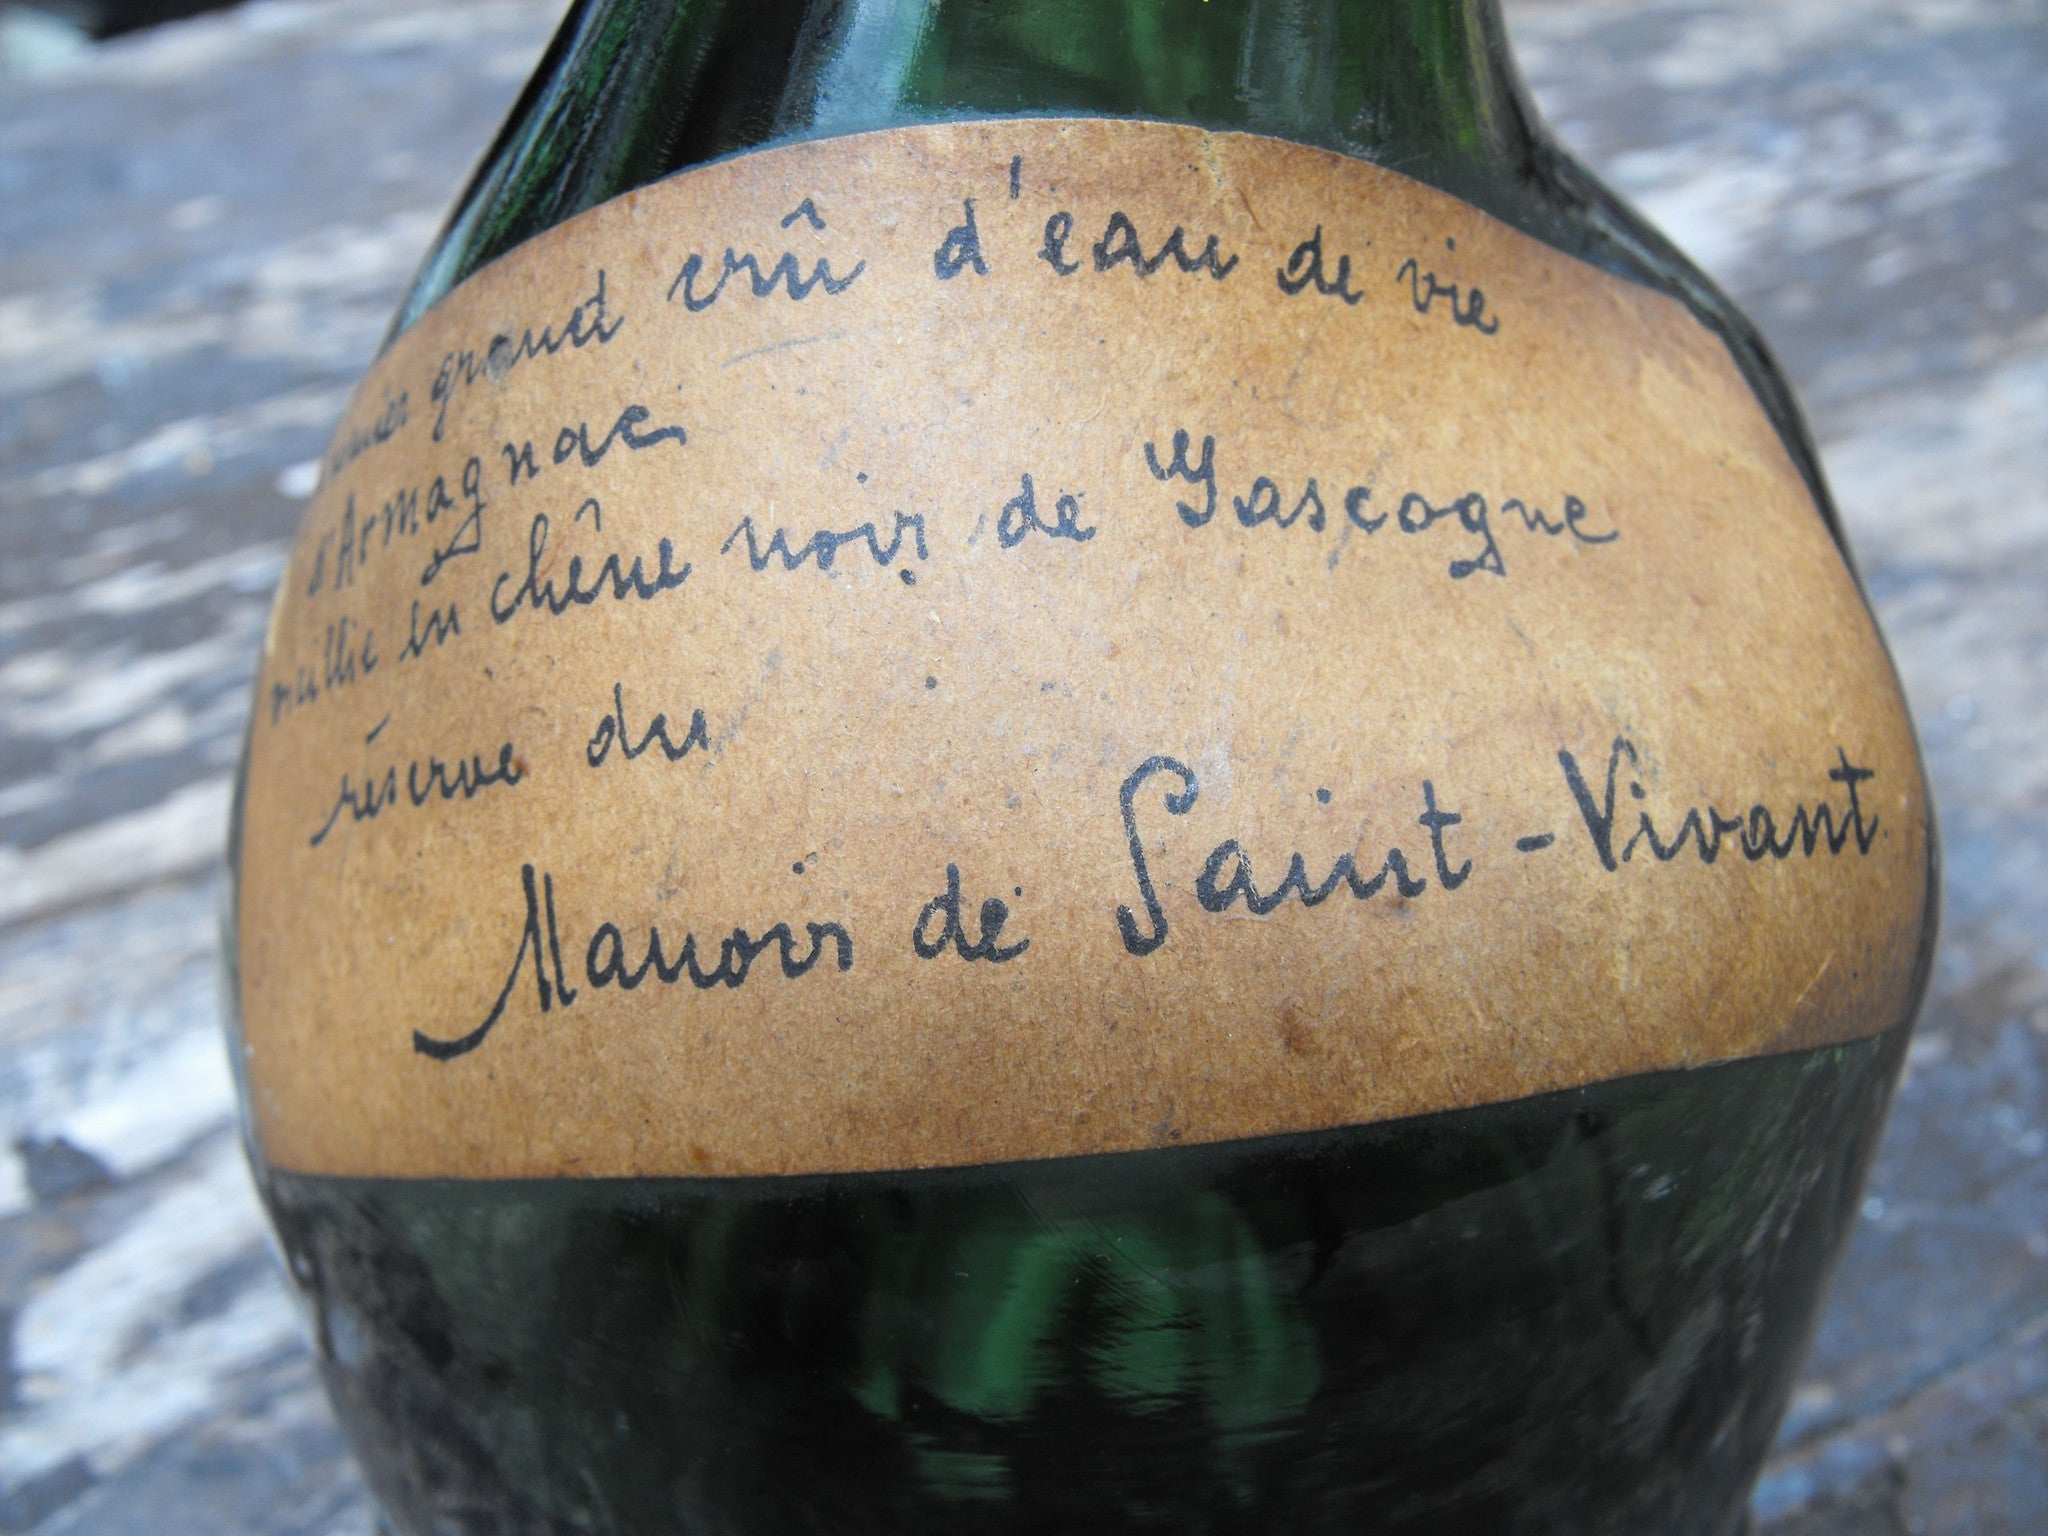 premier grand crû d'eau de vie
d'Armagnac
vieillie en chêne noir de Gascogne
réserve du
Manoir de Saint-Vivant